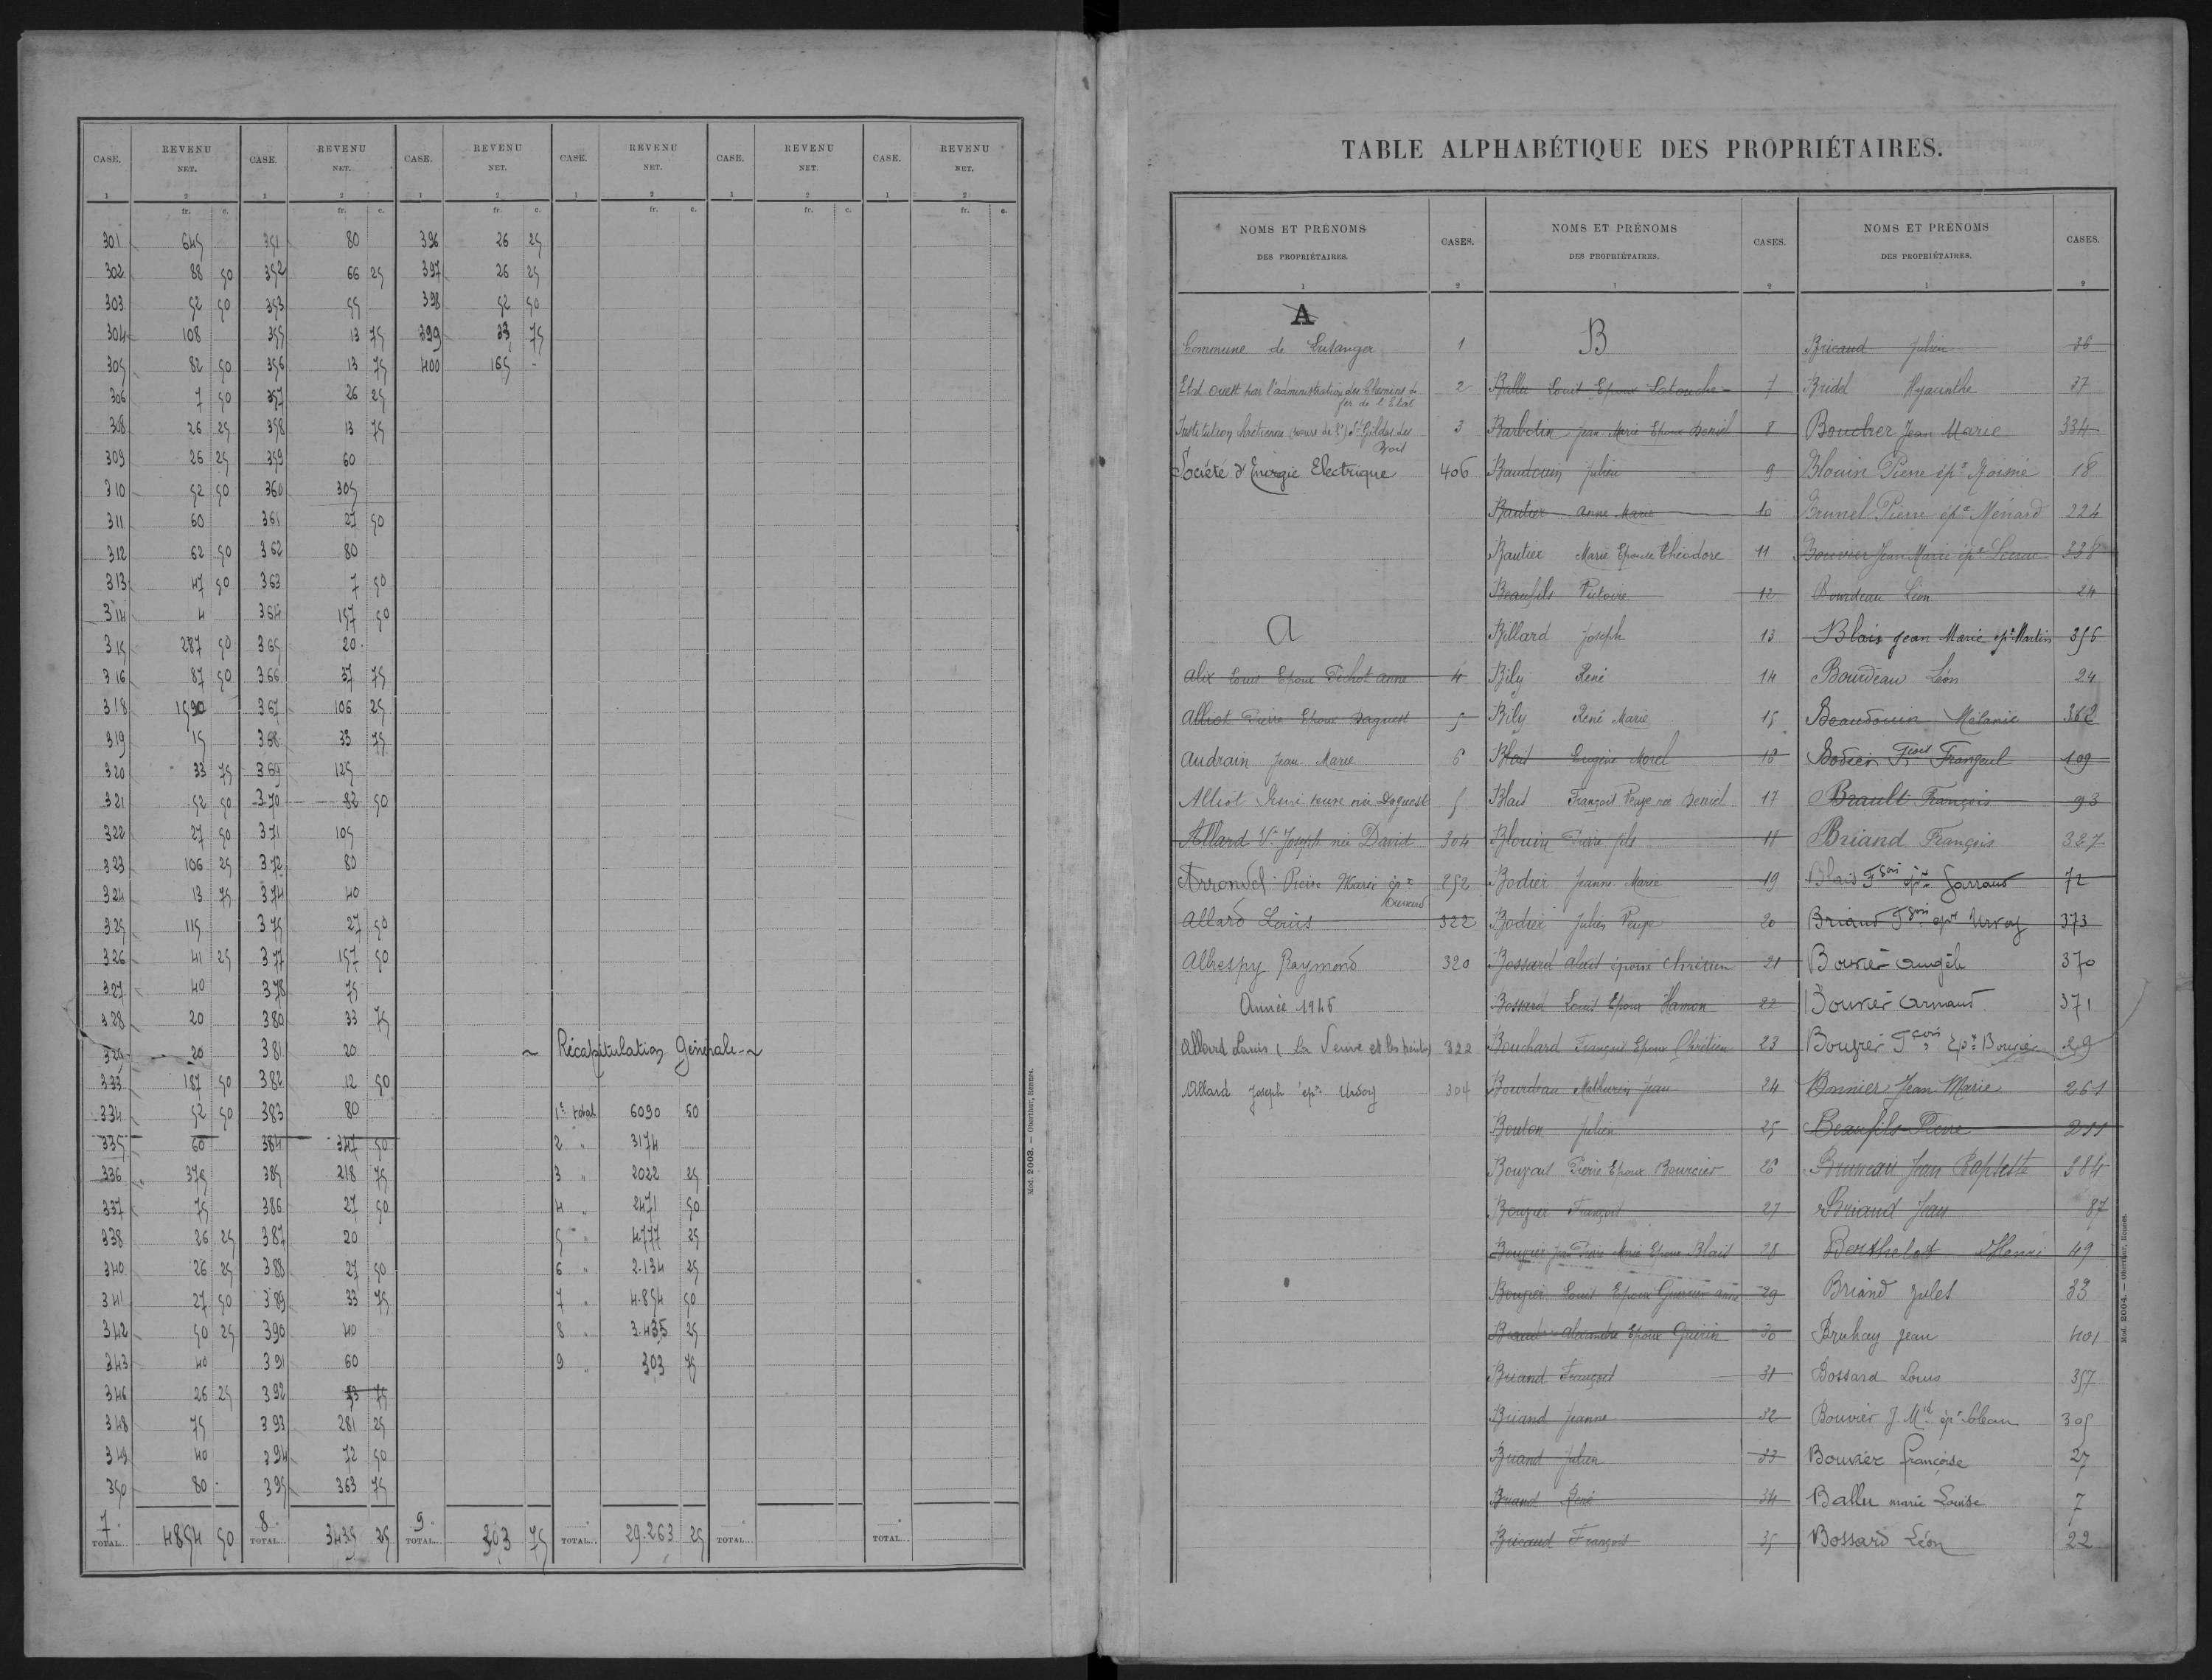 CASE. REVENU NET. CASE. REVENU NET. CASE. REVENU NET. CASE. REVENU NET. CASE. REVENU NET. CASE. REVENU NET.
1 2 1 2 1 2 1 2 1 2 1 2
fr. c. fr. c. fr. c. fr. c. fr. c. fr. c.
301 645 351 80 396 26 25
302 88 50 352 66 25 397 26 25
303 52 50 353 55 398 52 50
304 108 355 13 75 399 33 75
305 82 50 356 13 75 400 165 -
306 7 50 357 26 25
308 26 25 358 13 75
309 26 25 359 60
310 52 50 360 305
311 60 361 27 50
312 62 50 362 80
313 47 50 363 7 50
314 4 364 157 50
315 287 50 365 20
316 87 50 366 37 75
318 1590 367 106 25
319 15 368 33 75
320 33 75 369 125
321 52 50 370 82 50
322 27 50 371 105
323 106 25 372 80
324 13 75 374 40
325 115 375 27 50
326 41 25 377 157 50
327 40 378 75
328 20 380 33 75
329 20 381 20 ~ Récapitulation Générale ~
333 187 50 382 12 50
334 52 50 383 80 1er total 6090 50
335 60 384 347 50 2 " 3174
336 375 385 218 75 3 " 2022 25
337 75 386 27 50 4 " 2471 50
338 26 25 387 20 5 " 4777 25
340 26 25 388 27 50 6 " 2.134 25
341 27 50 389 33 75 7 " 4.854 50
342 50 25 390 40 8 " 3.435 25
343 40 391 60 9 " 303 75
346 26 25 392 33 75
348 75 393 281 25
349 40 394 72 50
350 80 395 363 75
7 TOTAL... 4854 50 8 TOTAL... 3435 25 9 TOTAL... 303 75 TOTAL... 29.263 25 TOTAL... TOTAL...
Mod. 2003. — Oberthur, Rennes.
TABLE ALPHABÉTIQUE DES PROPRIÉTAIRES.
NOMS ET PRÉNOMS DES PROPRIÉTAIRES. CASES. NOMS ET PRÉNOMS DES PROPRIÉTAIRES. CASES. NOMS ET PRÉNOMS DES PROPRIÉTAIRES. CASES.
1 2 1 2 1 2
A
Commune de Lusanger 1
Etat Ouest par l'administration des Chemins de 2
fer de l'Etat
Institution chrétienne (soeurs de l') St Gildas des 3
Bois
Société d'Energie Electrique 406
A
Alix Louis Epoux Pichot Anne 4
Alliot Pierre Epoux Daguest 5
Audrain Jean Marie 6
Alliot veuve née Daguest 5
Allard Ve Joseph née David 304
Arrondel Pierre Marie épx 252
Allard Louis 322
Albespy Raymond 320
Année 1945
Allard Louis (La Veuve et les héritiers 322
Allard Joseph épx Urvoy 304
B
Ballu Louis Epoux Latouche 7
Barbotin Jean Marie Epoux Deniel 8
Baudouin Julien 9
Bautier Anne Marie 10
Bautier Marie Epouse Théodore 11
Beaufils Victoire 12
Billard Joseph 13
Bily René 14
Bily René Marie 15
Blais Eugène Morel 16
Blais François Veuve née Deniel 17
Blouin Pierre fils 18
Bodier Jeanne Marie 19
Bodier Julien Veuve 20
Bossard Alexis époux Chrétien 21
Bossard Louis Epoux Hamon 22
Bouchard François Epoux Chrétien 23
Bourdeau Mathurin Jean 24
Bouton Julien 25
Pierre Epoux Bourcier 26
Bougrier François 27
Bougrier Jean Pierre Marie Epoux Blais 28
Bougrier Louis Epoux Guerrier Anne 29
Alexandre Epoux Guérin 30
Briand François 31
Briand Jeanne 32
Briand Julien 33
Briand René 34
Bricaud François 35
Bricaud Julien 36
Bridel Hyacinthe 37
Boucher Jean Marie 334
Blouin Pierre épx Moisne 18
Brunel Pierre épx Ménard 224
Bouvier Jean Marie épx 338
Bourdeau Léon 24
Blais Jean Marie épx Martin 356
Bourdeau Léon 24
Beaudouin Mélanie 362
Bodier Fçois Frangeul 109
Brault François 93
Briand François 387
Blais Fçois épx Garraud 72
Briand Fçois épx Urvoy 373
Bouvier Angèle 370
Bouvier Armand 371
Bougrier Fçois Epx Bouvier 29
Bonnier Jean Marie 261
Beaufils Pierre 211
Bruneau Jean Baptiste 384
Briand Jean 87
Berthelot Henri 49
Briand Jules 33
Bruhay Jean 401
Bossard Louis 357
Bouvier J. Mie épx 305
Bouvier Françoise 27
Ballu Marie Louise 7
Bossard Léon 22
Mod. 2004. — Oberthur, Rennes.